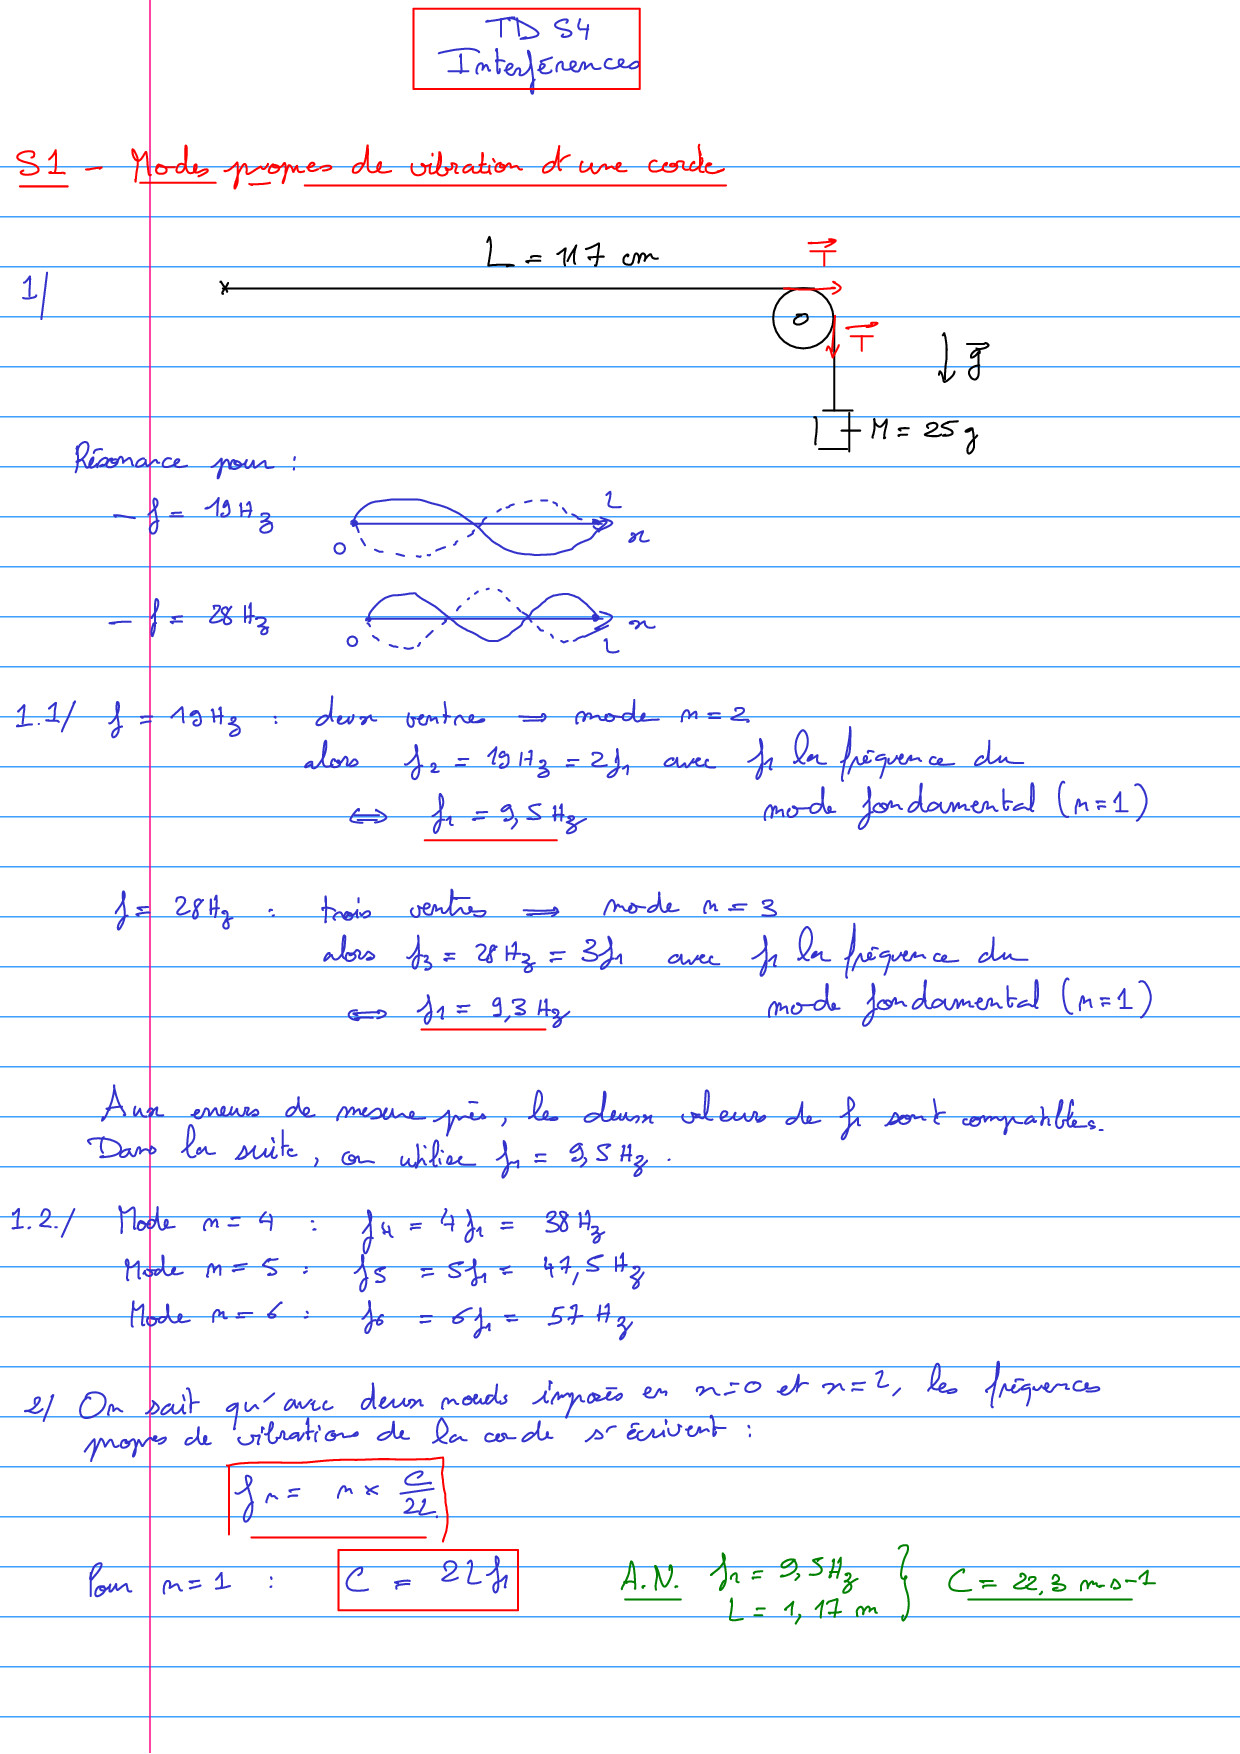 TD S4
Interférences
S1 - Modes propres de vibration d'une corde
1/
L = 117 cm
T
T
g
M = 25 g
Résonance pour :
- f = 19 Hz
0
L
x
- f = 28 Hz
0
x
L
1.1/ f = 19 Hz : deux ventres ⇒ mode n = 2
alors f2 = 19 Hz = 2f1 avec f1 la fréquence du
mode fondamental (n=1)
⇔ f1 = 9,5 Hz
f = 28 Hz : trois ventres ⇒ mode n = 3
alors f3 = 28 Hz = 3f1 avec f1 la fréquence du
mode fondamental (n=1)
⇔ f1 = 9,3 Hz
Aux erreurs de mesure près, les deux valeurs de f1 sont compatibles.
Dans la suite, on utilise f1 = 9,5 Hz.
1.2./ Mode n = 4 : f4 = 4f1 = 38 Hz
Mode n = 5 : f5 = 5f1 = 47,5 Hz
Mode n = 6 : f6 = 6f1 = 57 Hz
2/ On sait qu'avec deux nœuds imposés en x=0 et x=L, les fréquences
propres de vibrations de la corde s'écrivent :
fn = n × C/2L
Pour n = 1 : C = 2Lf1
A.N. f1 = 9,5 Hz
L = 1,17 m
C = 22,3 m.s-1